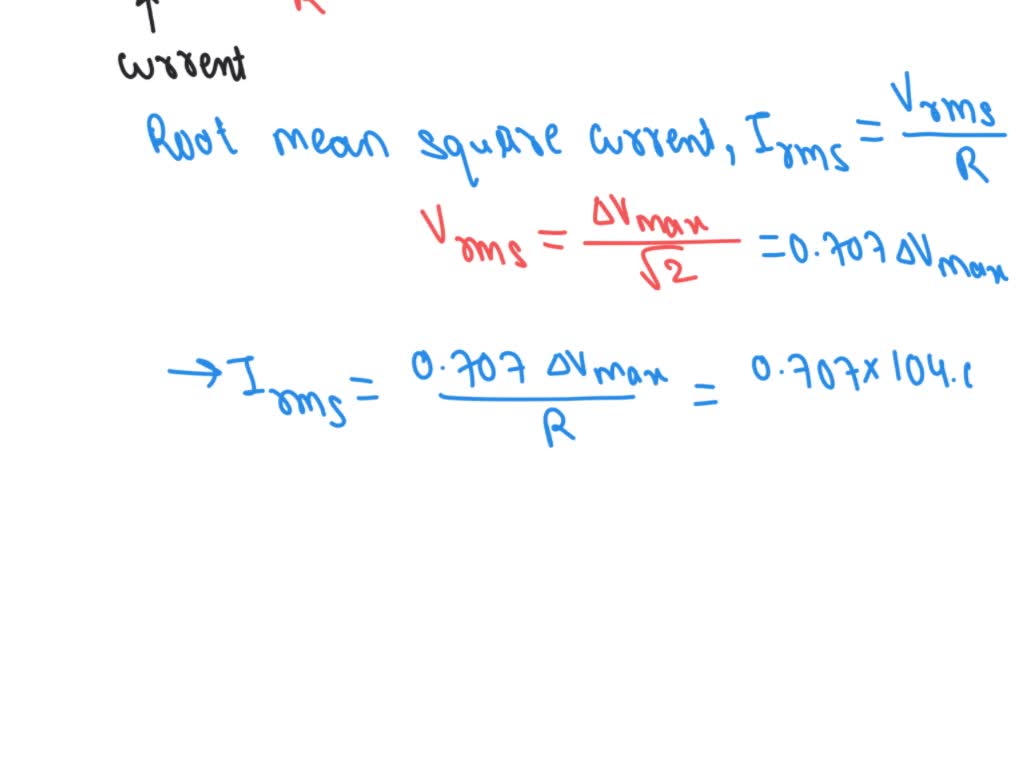 R
current
Root mean square current, Irms = Vrms / R
Vrms = ΔVmax / √2 = 0.707 ΔVmax
→ Irms = 0.707 ΔVmax / R = 0.707 × 104.